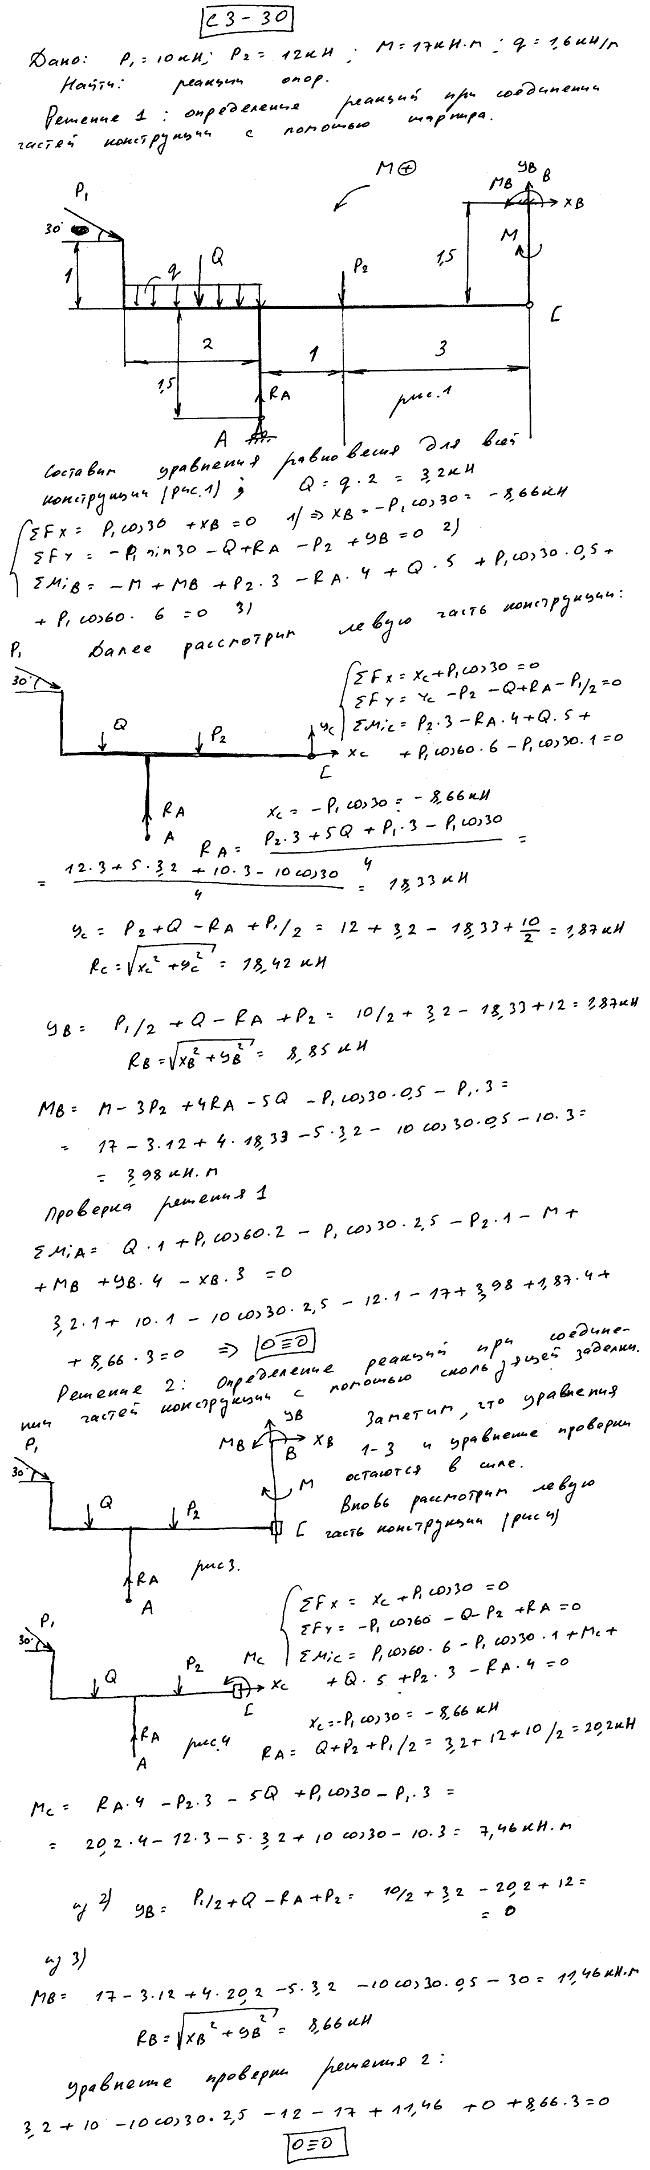 С3-30
Дано: P₁=10кН; P₂=12кН; M=17кН·м; q=1,6кН/м
Найти: реакции опор.
Решение 1: определение реакций при соединении
частей конструкции с помощью шарнира.
M ⊕
YB
MB B
XB
P₁
30°
M
1
q
Q
P₂
1,5
C
2
1
3
1,5
RA
рис.1
A
Составим уравнения равновесия для всей
конструкции (рис.1); Q = q·2 = 3,2кН
ΣFx = P₁cos30 + XB = 0 1) ⇒ XB = -P₁cos30 = -8,66кН
ΣFy = -P₁sin30 - Q + RA - P₂ + YB = 0 2)
ΣMiB = -M + MB + P₂·3 - RA·4 + Q·5 + P₁cos30·0,5 +
+ P₁cos60·6 = 0 3)
Далее рассмотрим левую часть конструкции:
P₁
30°
Q
P₂
Yc
Xc
C
RA
A
ΣFx = Xc + P₁cos30 = 0
ΣFy = Yc - P₂ - Q + RA - P₁/2 = 0
ΣMic = P₂·3 - RA·4 + Q·5 +
+ P₁cos60·6 - P₁cos30·1 = 0
Xc = -P₁cos30 = -8,66кН
RA = (P₂·3 + 5Q + P₁·3 - P₁cos30)/4 =
= (12·3 + 5·3,2 + 10·3 - 10cos30)/4 = 18,33кН
Yc = P₂ + Q - RA + P₁/2 = 12 + 3,2 - 18,33 + 10/2 = 1,87кН
Rc = √(Xc² + Yc²) = 18,42кН
YB = P₁/2 + Q - RA + P₂ = 10/2 + 3,2 - 18,33 + 12 = 1,87кН
RB = √(XB² + YB²) = 8,85кН
MB = M - 3P₂ + 4RA - 5Q - P₁cos30·0,5 - P₁·3 =
= 17 - 3·12 + 4·18,33 - 5·3,2 - 10cos30·0,5 - 10·3 =
= 3,98кН·м
Проверка решения 1
ΣMiA = Q·1 + P₁cos60·2 - P₁cos30·2,5 - P₂·1 - M +
+ MB + YB·4 - XB·3 = 0
3,2·1 + 10·1 - 10cos30·2,5 - 12·1 - 17 + 3,98 + 1,87·4 +
+ 8,66·3 = 0 ⇒ 0≡0
Решение 2: Определение реакций при соедине-
нии частей конструкции с помощью скользящей заделки.
P₁
30°
YB
MB
XB
B
M
Q
P₂
C
RA
A
рис3.
Заметим, что уравнения
1-3 и уравнение проверки
остаются в силе.
Вновь рассмотрим левую
часть конструкции (рис4)
P₁
30°
Q
P₂
Mc
Xc
C
RA
A
рис.4
ΣFx = Xc + P₁cos30 = 0
ΣFy = -P₁cos60 - Q - P₂ + RA = 0
ΣMic = P₁cos60·6 - P₁cos30·1 + Mc +
+ Q·5 + P₂·3 - RA·4 = 0
Xc = -P₁cos30 = -8,66кН
RA = Q + P₂ + P₁/2 = 3,2 + 12 + 10/2 = 20,2кН
Mc = RA·4 - P₂·3 - 5Q + P₁cos30 - P₁·3 =
= 20,2·4 - 12·3 - 5·3,2 + 10cos30 - 10·3 = 7,46кН·м
из 2) YB = P₁/2 + Q - RA + P₂ = 10/2 + 3,2 - 20,2 + 12 =
= 0
из 3)
MB = 17 - 3·12 + 4·20,2 - 5·3,2 - 10cos30·0,5 - 30 = 11,46кН·м
RB = √(XB² + YB²) = 8,66кН
Уравнение проверки решения 2:
3,2 + 10 - 10cos30·2,5 - 12 - 17 + 11,46 + 0 + 8,66·3 = 0
0≡0